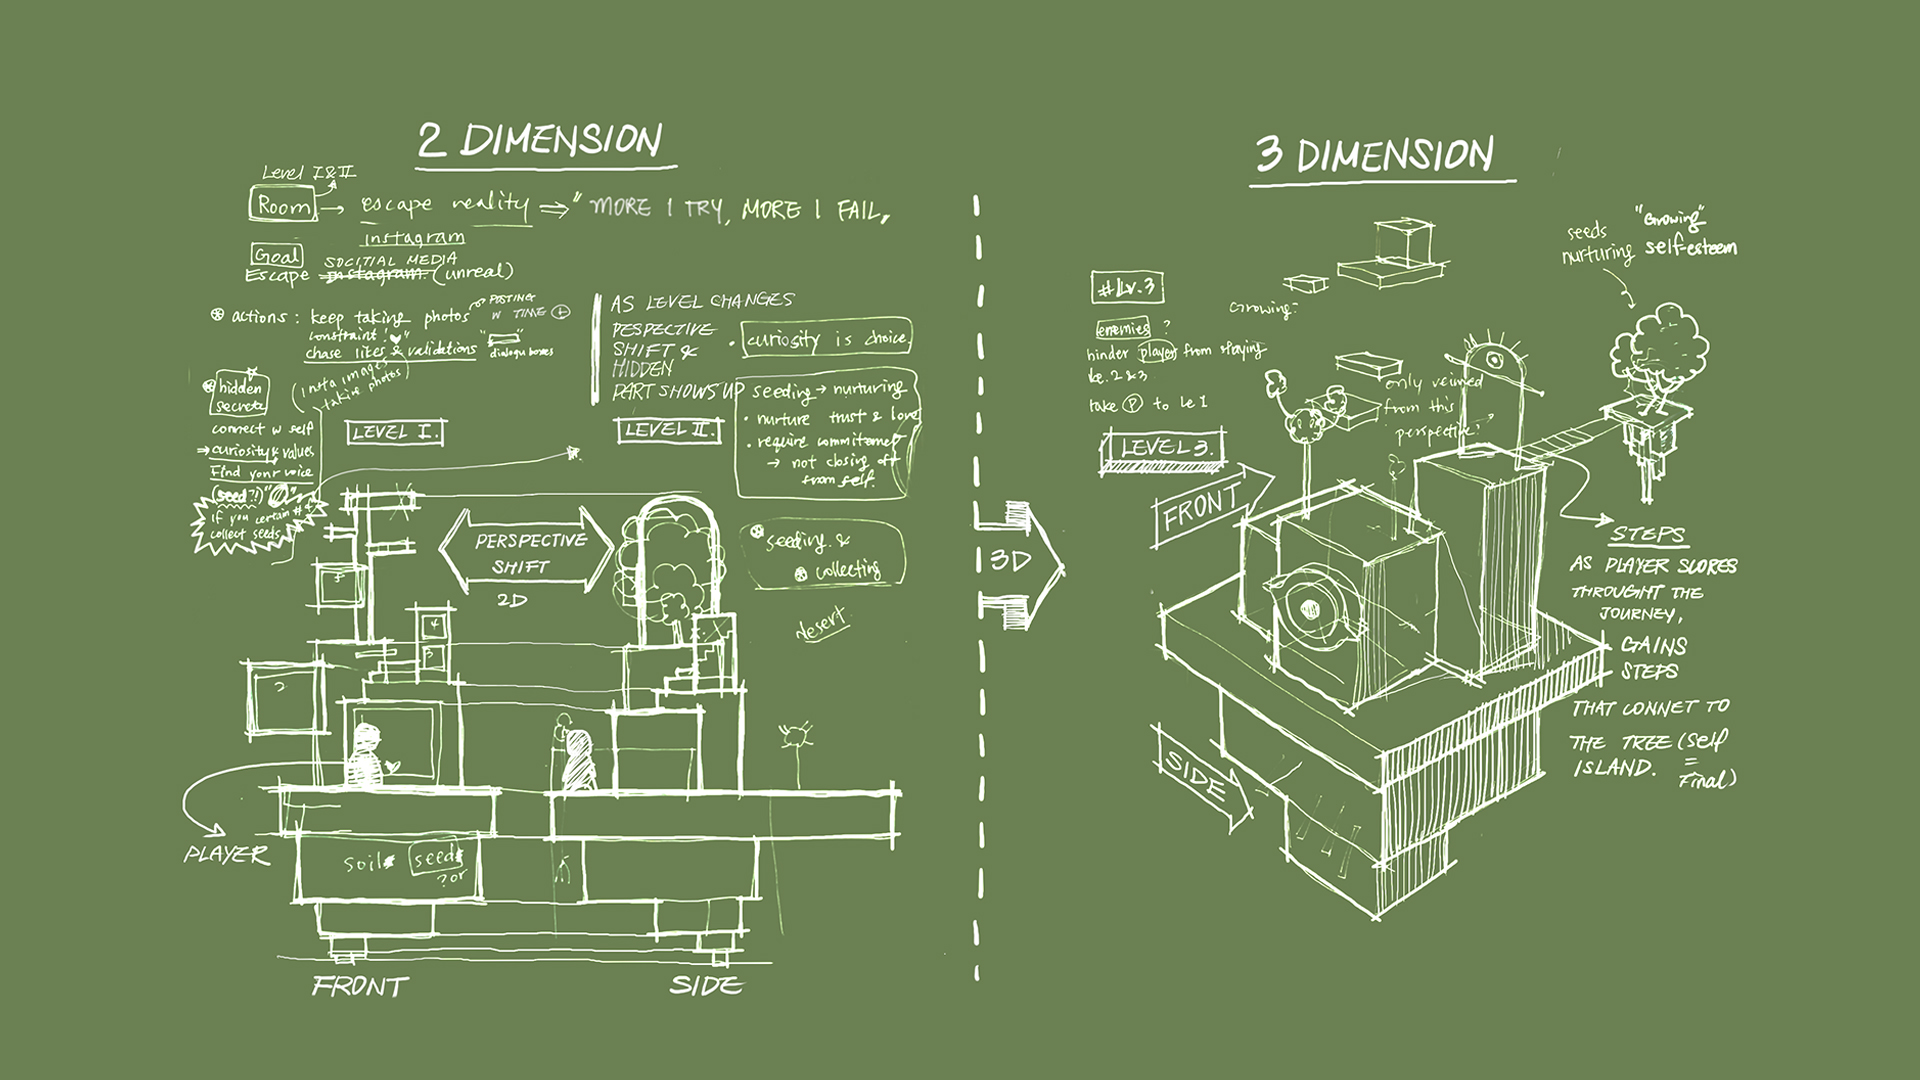 2 DIMENSION
Level I & II
Room → escape reality ⇒ " MORE I TRY, MORE I FAIL,
instagram
Goal
SOCITIAL MEDIA
Escape instagram. (unreal)
actions : keep taking photos
POSTING
W TIME
constraint!
chase likes & validations
" "
dialogue boxes
(insta images
taking photos)
hidden
secrets
connect w self
⇒ curiosity & values
Find your voice
(seed?!) " "
if you certain #
collect seeds
AS LEVEL CHANGES
PESPECTIVE
SHIFT &
HIDDEN
PART SHOWS UP
• curiosity is choice.
seeding → nurturing
• nurture trust & love
• require commitement
→ not closing off
from self.
LEVEL I.
LEVEL II.
PERSPECTIVE
SHIFT
2D
seeding &
collecting
desert
2
3
4
5
PLAYER
soil seeds
? or
FRONT
SIDE
3D
3 DIMENSION
"Growing"
self-esteem
seeds
nurturing
# Lv.3
Growing:
enemies ?
hinder player from staying
Le. 2 & 3
take P to Le 1
LEVEL 3.
only veiwed
from this
perspective.
FRONT
SIDE
STEPS
AS PLAYER SCORES
THROUGHT THE
JOURNEY,
GAINS
STEPS
THAT CONNET TO
THE TREE (self
ISLAND. = Final)